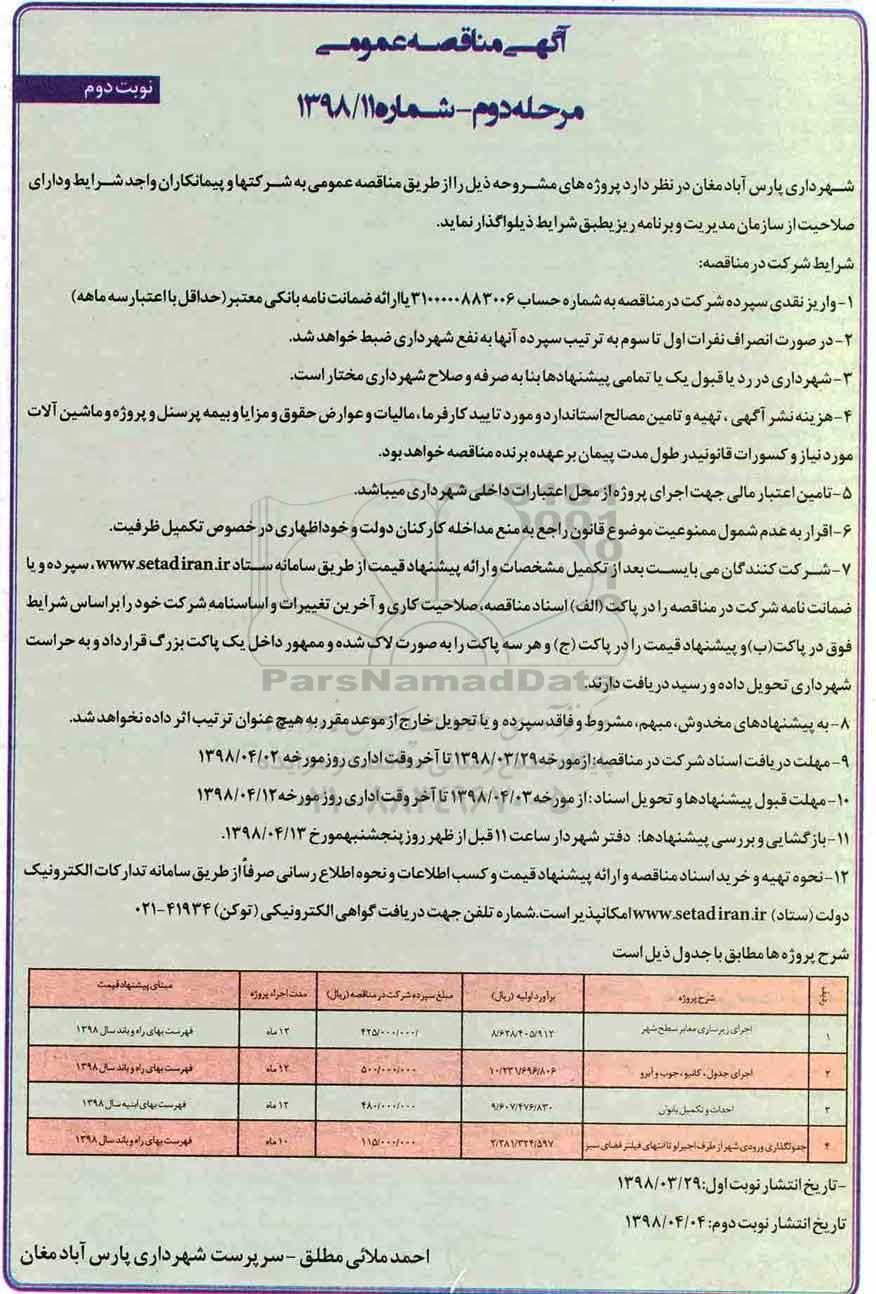 آگهی مناقصه عمومی
نوبت دوم
مرحله دوم - شماره ۱۳۹۸/۱۱
شهرداری پارس آباد مغان در نظر دارد پروژه های مشروحه ذیل را از طریق مناقصه عمومی به شرکتها و پیمانکاران واجد شرایط ودارای
صلاحیت از سازمان مدیریت و برنامه ریزیطبق شرایط ذیلواگذار نماید.
شرایط شرکت در مناقصه:
۱- واریز نقدی سپرده شرکت درمناقصه به شماره حساب ۳۱۰۰۰۰۰۸۸۳۰۰۶ یاارائه ضمانت نامه بانکی معتبر (حداقل با اعتبار سه ماهه)
۲- در صورت انصراف نفرات اول تا سوم به ترتیب سپرده آنها به نفع شهرداری ضبط خواهد شد.
۳- شهرداری در رد یا قبول یک یا تمامی پیشنهادها بنا به صرفه و صلاح شهرداری مختار است.
۴- هزینه نشر آگهی ، تهیه و تامین مصالح استاندارد و مورد تایید کارفرما، مالیات و عوارض حقوق و مزایا و بیمه پرسنل و پروژه و ماشین آلات
مورد نیاز و کسورات قانونیدر طول مدت پیمان بر عهده برنده مناقصه خواهد بود.
۵- تامین اعتبار مالی جهت اجرای پروژه از محل اعتبارات داخلی شهرداری میباشد.
۶- اقرار به عدم شمول ممنوعیت موضوع قانون راجع به منع مداخله کارکنان دولت و خوداظهاری در خصوص تکمیل ظرفیت.
۷- شرکت کنندگان می بایست بعد از تکمیل مشخصات و ارائه پیشنهاد قیمت از طریق سامانه ستاد www.setadiran.ir، سپرده و یا
ضمانت نامه شرکت در مناقصه را در پاکت (الف) اسناد مناقصه، صلاحیت کاری و آخرین تغییرات و اساسنامه شرکت خود را بر اساس شرایط
فوق در پاکت(ب) و پیشنهاد قیمت را در پاکت (ج) و هر سه پاکت را به صورت لاک شده و ممهور داخل یک پاکت بزرگ قرارداد و به حراست
شهرداری تحویل داده و رسید دریافت دارند.
ParsNamadData
۸- به پیشنهادهای مخدوش، مبهم، مشروط و فاقد سپرده و یا تحویل خارج از موعد مقرر به هیچ عنوان ترتیب اثر داده نخواهد شد.
۹- مهلت دریافت اسناد شرکت در مناقصه: از مورخه ۱۳۹۸/۰۳/۲۹ تا آخر وقت اداری روزمورخه ۱۳۹۸/۰۴/۰۲
۱۰- مهلت قبول پیشنهادها و تحویل اسناد: از مورخه ۱۳۹۸/۰۴/۰۳ تا آخر وقت اداری روز مورخه ۱۳۹۸/۰۴/۱۲
۱۱- بازگشایی و بررسی پیشنهادها: دفتر شهردار ساعت ۱۱ قبل از ظهر روز پنجشنبهمورخ ۱۳۹۸/۰۴/۱۳.
۱۲- نحوه تهیه و خرید اسناد مناقصه و ارائه پیشنهاد قیمت و کسب اطلاعات و نحوه اطلاع رسانی صرفاً از طریق سامانه تدارکات الکترونیک
دولت (ستاد) www.setadiran.ir امکانپذیر است.شماره تلفن جهت دریافت گواهی الکترونیکی (توکن) ۴۱۹۳۴-۰۲۱
شرح پروژه ها مطابق با جدول ذیل است
ردیف شرح پروژه برآورد اولیه (ریال) مبلغ سپرده شرکت در مناقصه (ریال) مدت اجراء پروژه مبنای پیشنهاد قیمت
۱ اجرای زیرسازی معابر سطح شهر ۸/۶۳۸/۴۰۵/۹۱۲ ۴۲۵/۰۰۰/۰۰۰/ ۱۲ ماه فهرست بهای راه و باند سال ۱۳۹۸
۲ اجرای جدول، کانیو، جوب و آبرو ۱۰/۲۳۱/۶۹۶/۸۰۶ ۵۰۰/۰۰۰/۰۰۰ ۱۲ ماه فهرست بهای راه و باند سال ۱۳۹۸
۳ احداث و تکمیل بانوان ۹/۶۰۷/۴۷۶/۸۳۰ ۴۸۰/۰۰۰/۰۰۰ ۱۲ ماه فهرست بهای ابنیه سال ۱۳۹۸
۴ جدولگذاری ورودی شهر از طرف اجیرلو تا انتهای فیلتر فضای سبز ۲/۲۸۱/۳۲۴/۵۹۷ ۱۱۵/۰۰۰/۰۰۰ ۱۰ ماه فهرست بهای راه و باند سال ۱۳۹۸
-تاریخ انتشار نوبت اول: ۱۳۹۸/۰۳/۲۹
تاریخ انتشار نوبت دوم: ۱۳۹۸/۰۴/۰۴
احمد ملائی مطلق - سرپرست شهرداری پارس آباد مغان